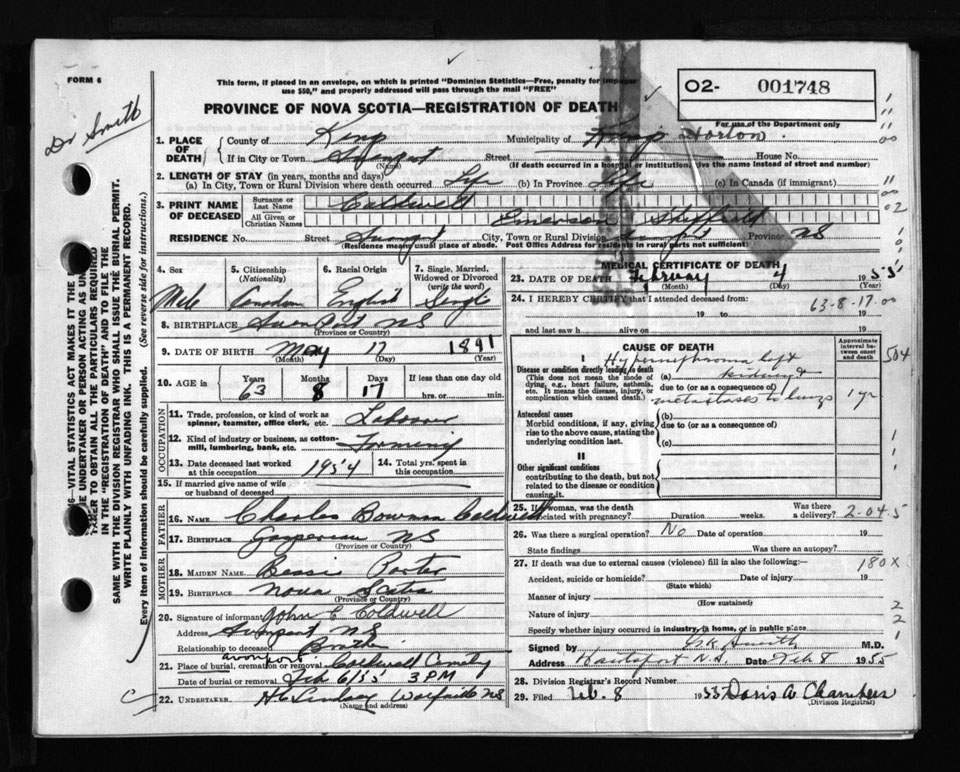 FORM 6
This form, if placed in an envelope, on which is printed "Dominion Statistics—Free, penalty for improper
use $50," and properly addressed will pass through the mail "FREE"
PROVINCE OF NOVA SCOTIA—REGISTRATION OF DEATH
O2- 001748
For use of the Department only
Dr Smith
1. PLACE OF DEATH County of Kings Municipality of Kings Horton
If in City or Town (Name) Street House No.
(If death occurred in a hospital or institution, give the name instead of street and number)
2. LENGTH OF STAY (in years, months and days)
(a) In City, Town or Rural Division where death occurred Life (b) In Province Life (c) In Canada (if immigrant)
3. PRINT NAME OF DECEASED Surname or Last Name Caldwell
All Given or Christian Names Emerson Sheffield
RESIDENCE No. Street Avonport City, Town or Rural Division Province NS
(Residence means usual place of abode. Post Office Address for residents in rural parts not sufficient)
4. Sex Male
5. Citizenship (Nationality) Canadian
6. Racial Origin English
7. Single, Married, Widowed or Divorced (write the word) Single
8. BIRTHPLACE Avonport NS
(Province or Country)
9. DATE OF BIRTH May 17 1891
(Month) (Day) (Year)
10. AGE in Years 63 Months 8 Days 17 If less than one day old
hrs. or min.
OCCUPATION
11. Trade, profession, or kind of work as spinner, teamster, office clerk, etc. Labourer
12. Kind of industry or business, as cotton-mill, lumbering, bank, etc. Farming
13. Date deceased last worked at this occupation 1954 14. Total yrs. spent in this occupation
15. If married give name of wife or husband of deceased
FATHER
16. NAME Charles Bowman Caldwell
17. BIRTHPLACE Gaspereau NS
(Province or Country)
MOTHER
18. MAIDEN NAME Bessie Porter
19. BIRTHPLACE Nova Scotia
(Province or Country)
20. Signature of informant John E Coldwell
Address Avonport NS
Relationship to deceased Brother
avonport
21. Place of burial, cremation or removal Coldwell Cemetry
Date of burial or removal Feb 6/55 3 PM
22. UNDERTAKER H C Lindsay Wolfville NS
(Name and address)
MEDICAL CERTIFICATE OF DEATH
23. DATE OF DEATH February 4 1955
(Month) (Day)
24. I HEREBY CERTIFY that I attended deceased from:
19 to 19
63-8-17-00
and last saw h alive on 19
CAUSE OF DEATH
Approximate interval between onset and death
504
I
Disease or condition directly leading to death
(This does not mean the mode of dying, e.g., heart failure, asthenia, etc. It means the disease, injury, or complication which caused death.)
(a) Hypernephroma left kidney &
due to (or as a consequence of)
metastases to lungs 1 yr
Antecedent causes
Morbid conditions, if any, giving rise to the above cause, stating the underlying condition last.
(b)
due to (or as a consequence of)
(c)
II
Other significant conditions
contributing to the death, but not related to the disease or condition causing it.
25. If woman, was the death associated with pregnancy? Duration weeks. Was there a delivery? 2-04 5
26. Was there a surgical operation? No Date of operation 19
State findings Was there an autopsy?
27. If death was due to external causes (violence) fill in also the following:— 180X
Accident, suicide or homicide? Date of injury 19
(State which)
Manner of injury
(How sustained)
Nature of injury
Specify whether injury occurred in industry, in home, or in public place
Signed by C K Smith M.D.
Address Hantsport N.S. Date Feb 8 1955
28. Division Registrar's Record Number
29. Filed Feb. 8 1955 Doris W Chambers
(Division Registrar)
SAME WITH THE DIVISION REGISTRAR WHO SHALL ISSUE THE BURIAL PERMIT.
WRITE PLAINLY WITH UNFADING INK. THIS IS A PERMANENT RECORD.
Every item of information should be carefully supplied. (See reverse side for instructions.)